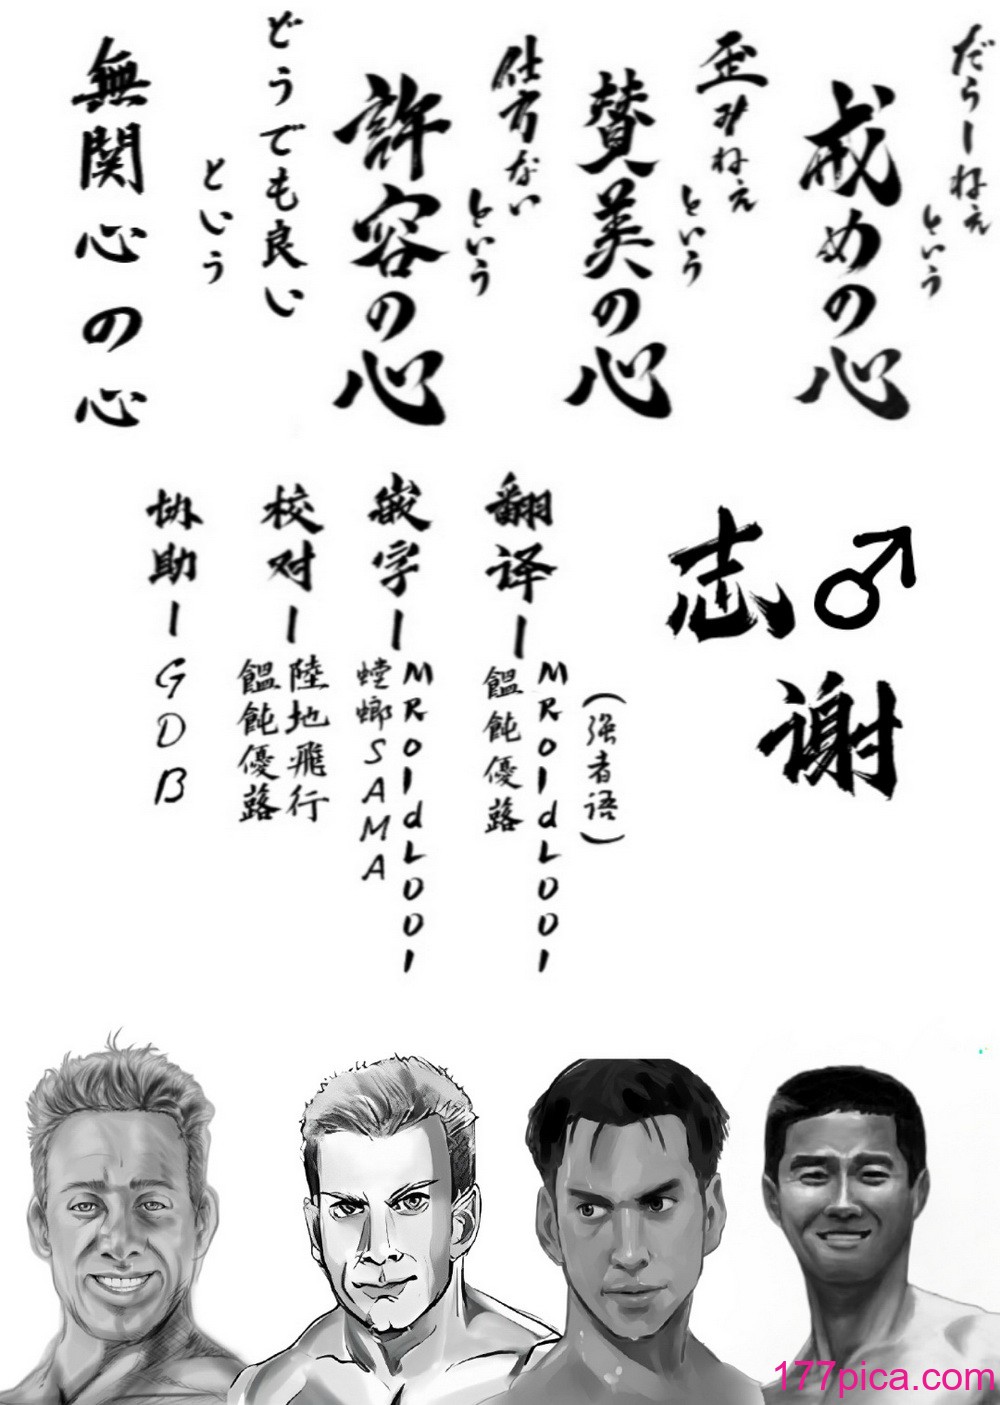 だらーねえ
という
戒めの心
歪みねえ
という
賛美の心
仕方ない
という
許容の心
どうでも良い
という
無関心の心
志♂
谢
翻译ー
(强者语)
MROldLOOI
饂飩優蕗
嵌字ー
MROldLOOI
螳螂SAMA
校对ー
陸地飛行
饂飩優蕗
协助ー
GDB
177pica.com